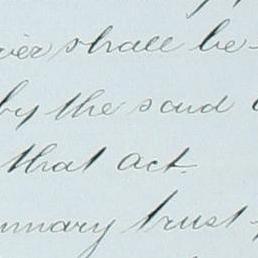 shall be
by the said
that act.
trust